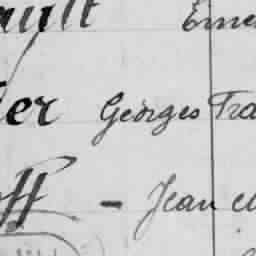 ault Erne
ier Georges Fra
off - Jean